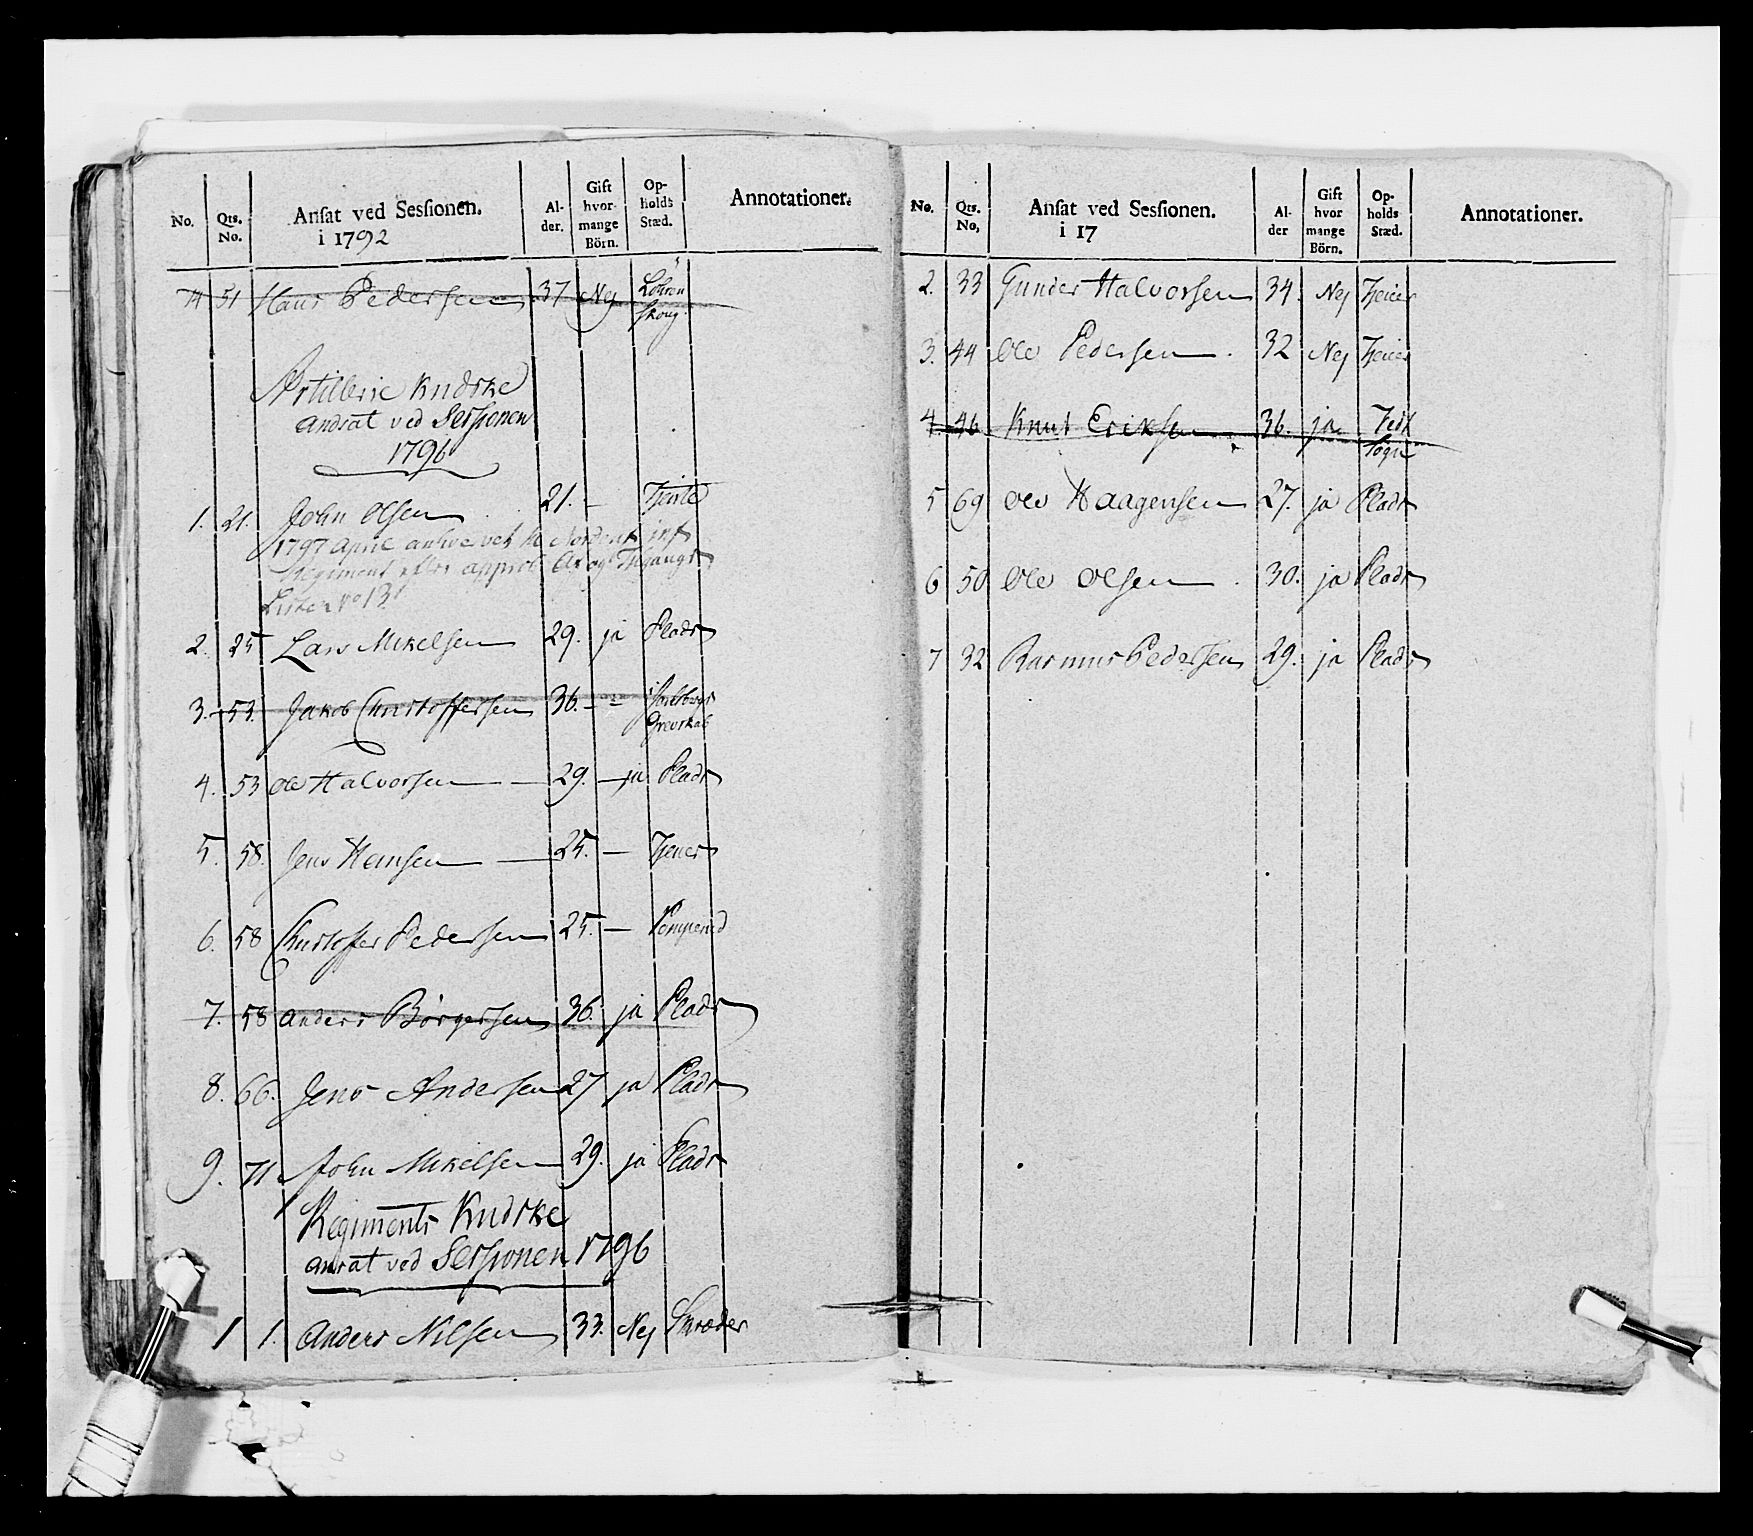 No. Qts. No. Ansat ved Sessionen. i 1792 Al- der. Gift hvor- mange Börn. Op- holds Stæd. Annotationer.
14 51 Hans Pedersen 37 Nej Lören skoug
Artillerie Kudske
andsat ved Sessionen
1796
1. 21. John Olsen 21. – Tjeiste
1797 April
Regiment efter approb: Af og Tilgangs
Liste No 13
2. 25 Lars Mikelsen 29. ja Plads
3. 53 Jakob Christoffersen 36. – Jarlsbergs Grevskab
4. 53 Ole Halvorsen 29. – ja Plads
5. 58. Jens Hansen 25. – Tjener
6. 58 Christoffer Pedersen 25. –
7. 58 Anders Börgersen 36. ja Plads
8. 66. Jens Andersen 27 ja Plads
9. 71 John Mikelsen 29. ja Plads
Regiments Kudske
ansat ved Sessionen 1796
1 1. Anders Nilsen 33. Nej Skræder
No. Qts. No, Ansat ved Sessionen. i 17 Al- der Gift hvor mange Börn. Op- holds Stæd. Annotationer.
2. 33 Gunder Halvorsen 34. Nej Tjener
3. 44 Ole Pedersen. 32 Nej Tjener
4. 46 Knut Eriksen 36. ja Sogn
5 69 Ole Haagensen 27. ja Plads
6 50 Ole Olsen. 30. ja Plads
7 32 Rasmus Pedersen 29. ja Plads